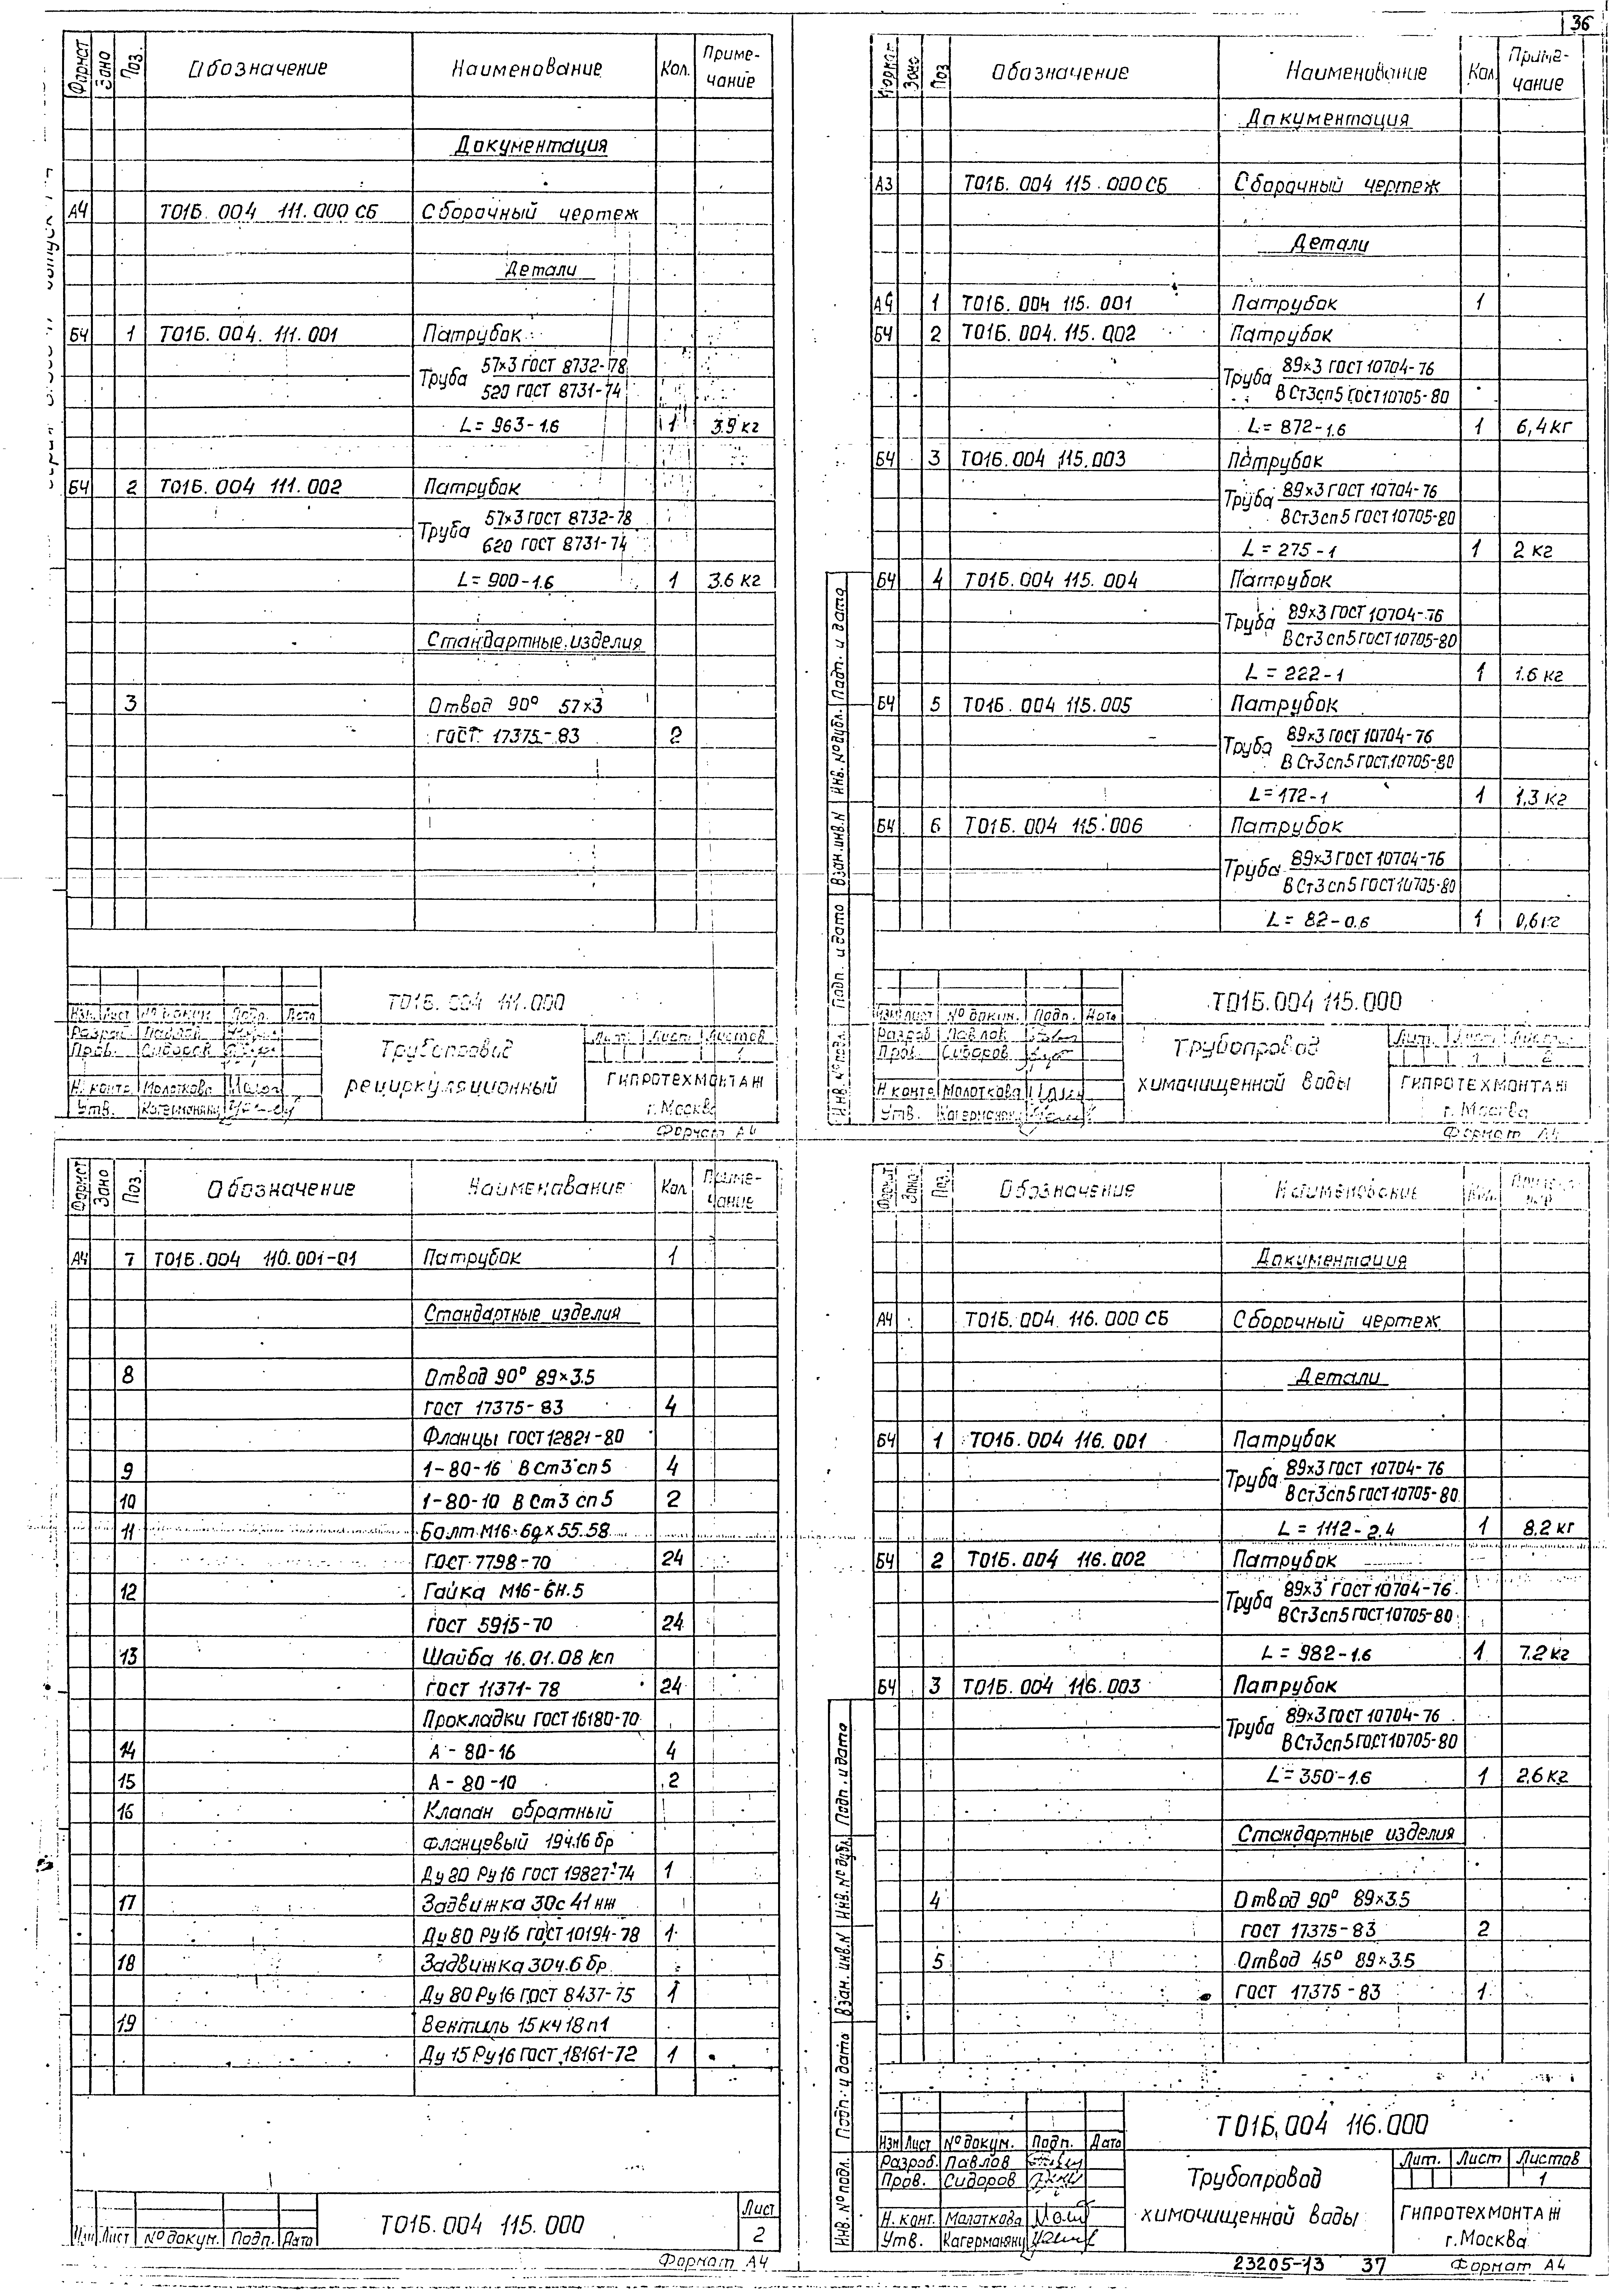 36
Формат Зона Поз. Обозначение Наименование Кол. Приме-
чание
Документация
А4 Т01Б.004 111.000 СБ Сборочный чертеж
Детали
БЧ 1 Т01Б.004.111.001 Патрубок
Труба 57×3 ГОСТ 8732-78
520 ГОСТ 8731-74
L= 963-1.6 1 3.9 кг
БЧ 2 Т01Б.004 111.002 Патрубок
Труба 57×3 ГОСТ 8732-78
620 ГОСТ 8731-74
L= 900-1.6 1 3.6 кг
Стандартные изделия
3 Отвод 90° 57×3
ГОСТ 17375-83 2
Т01Б.004 111.000
Изм. Лист № докум. Подп. Дата
Разраб. Павлов
Пров. Сидоров
Н. контр. Молоткова
Утв. Кагерманян
Трубопровод
рециркуляционный
Лит. Лист Листов
1
ГИПРОТЕХМОНТАЖ
г. Москва
Формат А4
Формат Зона Поз. Обозначение Наименование Кол. Приме-
чание
Документация
А3 Т01Б.004 115.000 СБ Сборочный чертеж
Детали
А4 1 Т01Б.004 115.001 Патрубок 1
БЧ 2 Т01Б.004.115.002 Патрубок
Труба 89×3 ГОСТ 10704-76
В Ст3сп5 ГОСТ 10705-80
L= 872-1.6 1 6,4 кг
БЧ 3 Т01Б.004 115.003 Патрубок
Труба 89×3 ГОСТ 10704-76
ВСт3сп5 ГОСТ 10705-80
L = 275-1 1 2 кг
БЧ 4 Т01Б.004 115.004 Патрубок
Труба 89×3 ГОСТ 10704-76
ВСт3сп5 ГОСТ 10705-80
L = 222-1 1 1.6 кг
БЧ 5 Т01Б.004 115.005 Патрубок
Труба 89×3 ГОСТ 10704-76
В Ст3сп5 ГОСТ 10705-80
L= 172-1 1 1,3 кг
БЧ 6 Т01Б.004 115.006 Патрубок
Труба 89×3 ГОСТ 10704-76
В Ст3сп5 ГОСТ 10705-80
L= 82-0.6 1 0,6 кг
Инв. № подл. Подп. и дата Взам. инв. N Инв. № дубл. Подп. и дата
Т01Б.004 115.000
Изм Лист № докум. Подп. Дата
Разраб. Павлов
Пров. Сидоров
Н контр. Молоткова
Утв. Кагерманян
Трубопровод
химочищенной воды
Лит. Лист Листов
1 2
ГИПРОТЕХМОНТАЖ
г. Москва
Формат А4
Формат Зона Поз. Обозначение Наименование Кол. Приме-
чание
А4 7 Т01Б.004 110.001-01 Патрубок 1
Стандартные изделия
8 Отвод 90° 89×3.5
ГОСТ 17375-83 4
Фланцы ГОСТ 12821-80
9 1-80-16 В Ст3 сп5 4
10 1-80-10 В Ст3 сп5 2
11 Болт М16-6g×55.58
ГОСТ 7798-70 24
12 Гайка М16-6Н.5
ГОСТ 5915-70 24
13 Шайба 16.01.08 кп
ГОСТ 11371-78 24
Прокладки ГОСТ 15180-70
14 А-80-16 4
15 А-80-10 2
16 Клапан обратный
фланцевый 19ч16 бр
Ду 80 Ру16 ГОСТ 19827-74 1
17 Задвижка 30с 41 нж
Ду 80 Ру16 ГОСТ 10194-78 1
18 Задвижка 30ч.6 бр
Ду 80 Ру16 ГОСТ 8437-75 1
19 Вентиль 15кч 18п1
Ду 15 Ру16 ГОСТ 18161-72 1
Изм Лист № докум. Подп. Дата
Т01Б.004 115.000
Лист
2
Формат А4
Формат Зона Поз. Обозначение Наименование Кол.
Документация
А4 Т01Б.004 116.000 СБ Сборочный чертеж
Детали
БЧ 1 Т01Б.004 116.001 Патрубок
Труба 89×3 ГОСТ 10704-76
В Ст3сп5 ГОСТ 10705-80
L = 1112-2.4 1 8.2 кг
БЧ 2 Т01Б.004 116.002 Патрубок
Труба 89×3 ГОСТ 10704-76
ВСт3сп5 ГОСТ 10705-80
L = 982-1.6 1 7.2 кг
БЧ 3 Т01Б.004 116.003 Патрубок
Труба 89×3 ГОСТ 10704-76
В Ст3сп5 ГОСТ 10705-80
L= 350-1.6 1 2,6 кг
Стандартные изделия
4 Отвод 90° 89×3.5
ГОСТ 17375-83 2
5 Отвод 45° 89×3.5
ГОСТ 17375-83 1
Инв. № подл. Подп. и дата Взам. инв. N Инв. № дубл. Подп. и дата
Т01Б.004 116.000
Изм Лист № докум. Подп. Дата
Разраб. Павлов
Пров. Сидоров
Н. конт. Молоткова
Утв. Кагерманян
Трубопровод
химочищенной воды
Лит. Лист Листов
1
ГИПРОТЕХМОНТАЖ
г. Москва
23205-13 37 Формат А4